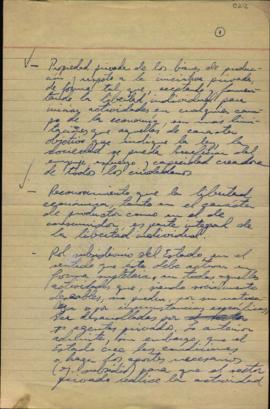 1
— Propiedad privada de los bienes de produc-
ción y respeto a la iniciativa privada,
de forma tal que, aceptada y fomen-
tando la libertad individual para
iniciar actividades en cualquier cam-
po de la economía, sin más limi-
taciones que aquellas de carácter
objetivo que indique la ley, la
sociedad se pueda beneficiar del
empuje, esfuerzo y capacidad creadora
de todos los ciudadanos.
— Reconocimiento que la libertad
económica, tanto en el carácter
de productor como en el de
consumidor, es parte integral de
la libertad individual.
— Rol subsidiario del Estado, en el
sentido que éste debe actuar en
forma supletoria en todas aquellas
actividades que, siendo socialmente
deseables, no puedan, por su natura-
leza y por circunstancias específicas,
ser desarrolladas por
agentes privados. Lo anterior
admite, sin embargo, que el
Estado cree las condiciones
y haga los aportes necesarios
(ej. subsidios) para que el sector
privado realice la actividad